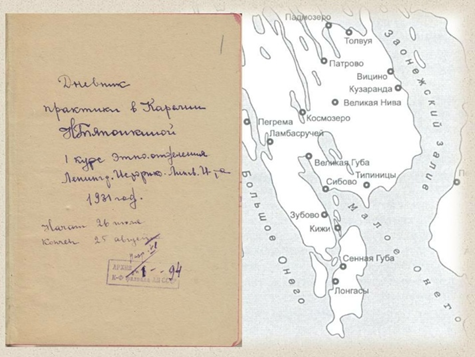 1
Дневник
практики в Карелии
I курс Этно-отделения
Ленингр. Историко-Лингв. И-та
1931 год.
Начат 26 июля
25 август
94
Падмозеро
Толвуя
Патрово
Вицино
Кузаранда
Великая Нива
Космозеро
Пегрема
Ламбасручей
Великая Губа
Типиницы
Сибово
Зубово
Кижи
Сенная Губа
Лонгасы
Заонежский залив
Большое Онего
Малое Онего